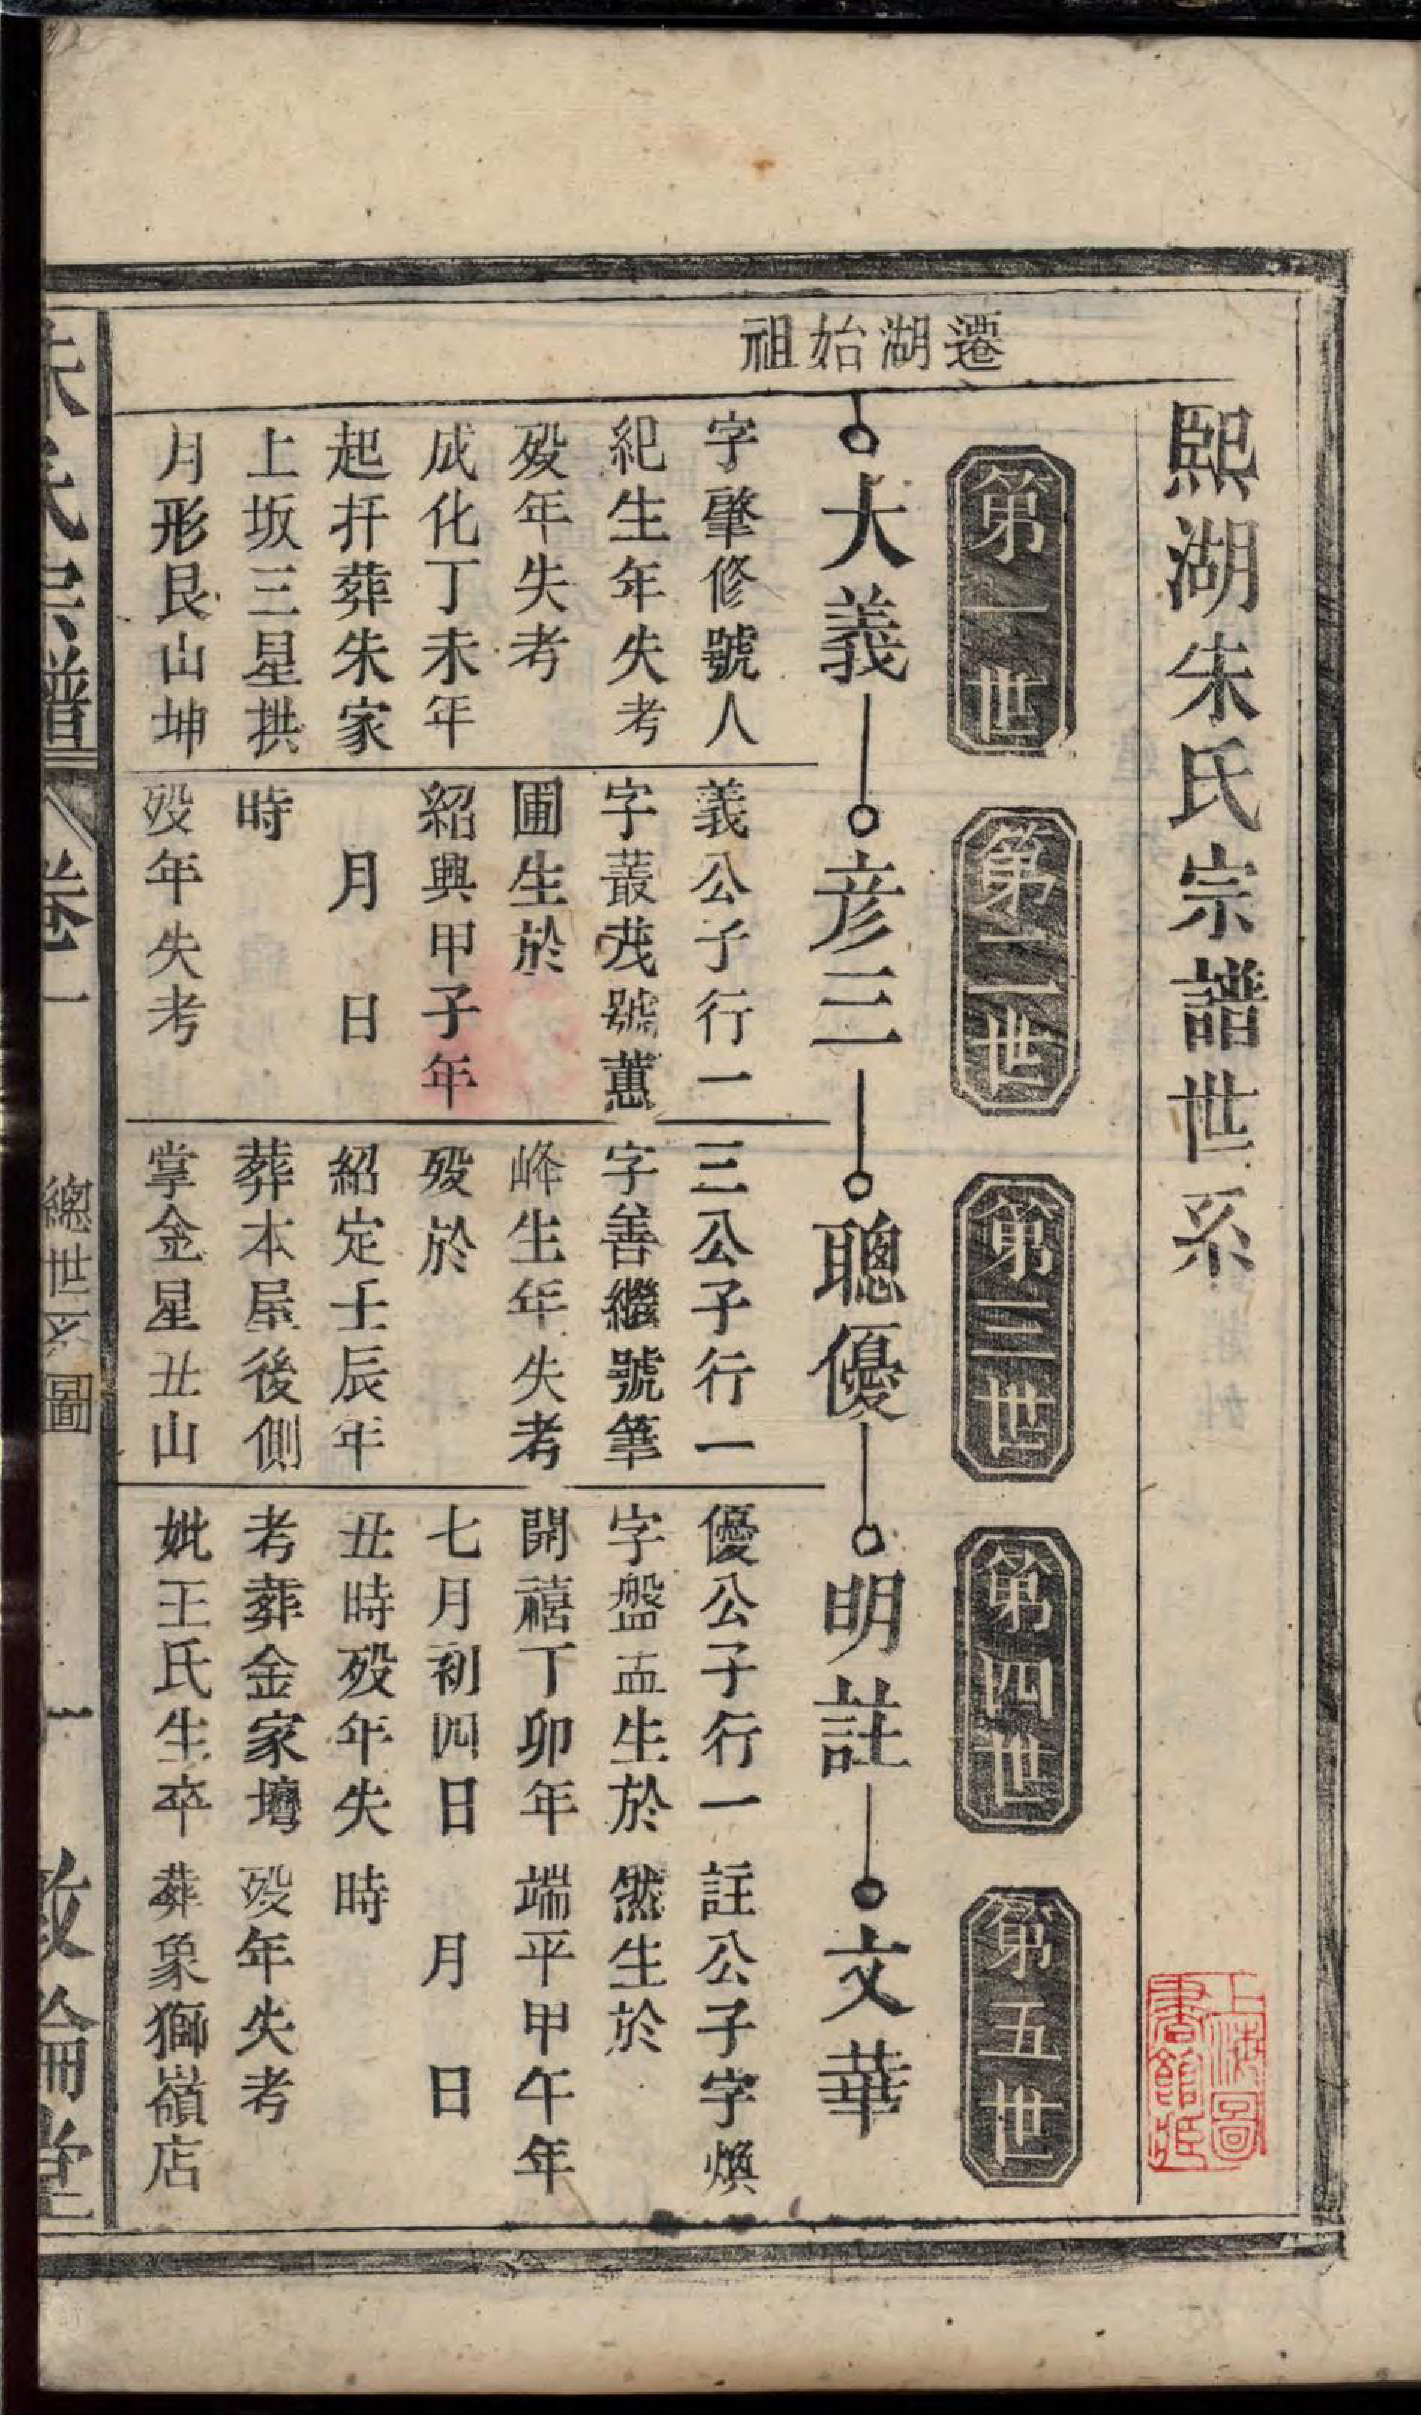 熙湖朱氏宗譜世系
上海圖
書館藏
遷湖始祖
第一世
第二世
第三世
第四世
第五世
大義
彦三
聰優
明註
文華
字肇修號人
紀生年失考
歿年失考
成化丁未年
起扦葬朱家
上坂三星拱
月形艮山坤
義公子行一
字叢茂號蕙
圃生於
紹興甲子年
月　日
時
歿年失考
三公子行一
字善繼號筆
峰生年失考
歿於
紹定壬辰年
葬本屋後側
掌金星丑山
優公子行一
字盤盂生於
開禧丁卯年
七月初四日
丑時歿年失
考葬金家塆
妣王氏生卒
註公子字煥
然生於
端平甲午年
月　日
時
歿年失考
葬象獅嶺店
朱氏宗譜
卷一
總世系圖
一
敦倫堂